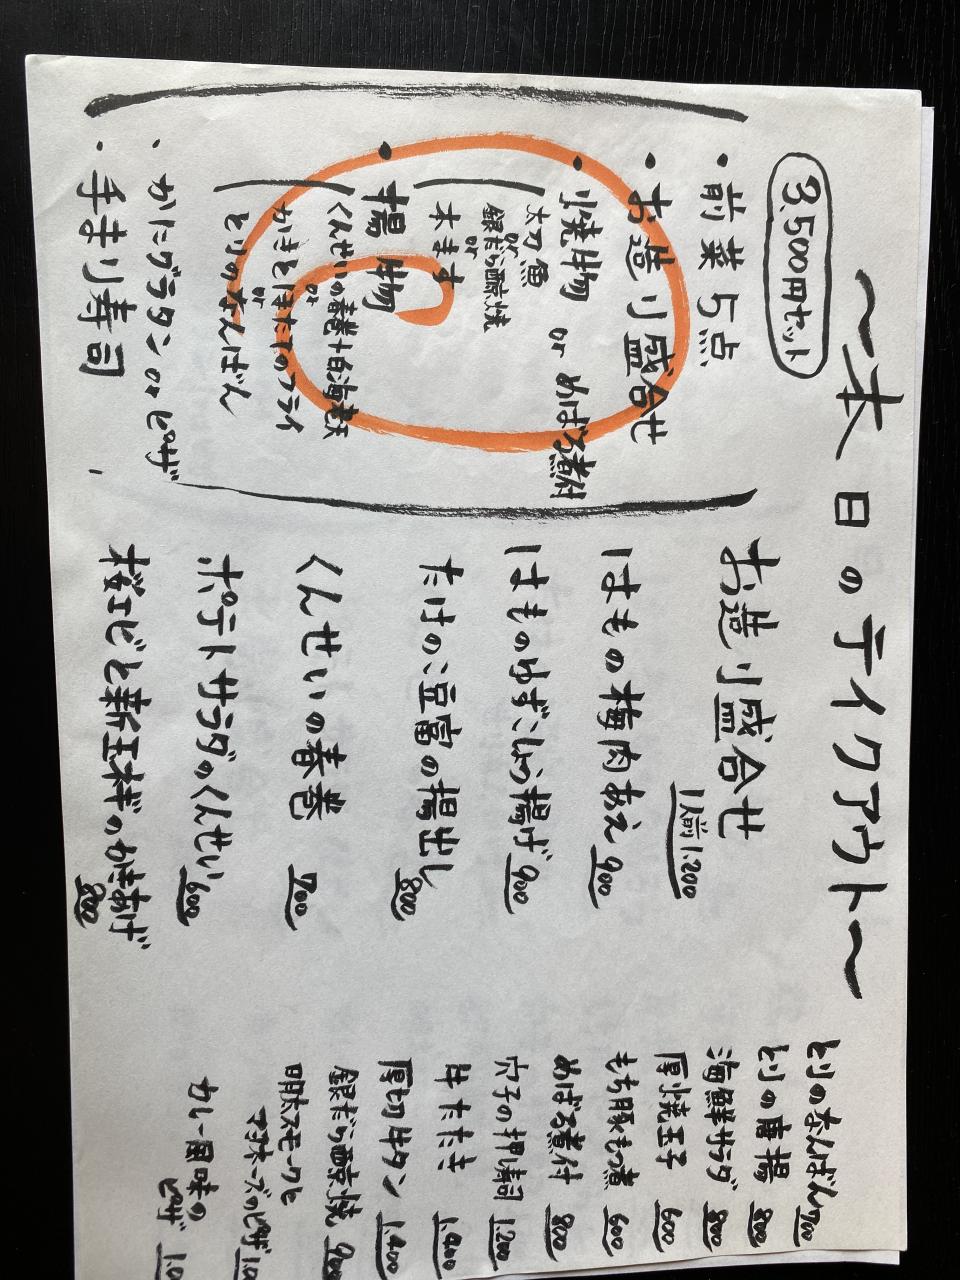 〜本日のテイクアウト〜
3,500円セット
・前菜5点
・お造り盛合せ
・焼物 or めばる煮付
太刀魚
or
銀だら西京焼
or
本ます
・揚物
くんせいの春巻+白海老天
or
かきとほたてのフライ
or
とりのなんばん
・かにグラタン or ピザ
・手まり寿司
お造り盛合せ
1人前1.200
はもの梅肉あえ 900
はものゆずこしょう揚げ 900
たけのこ豆富の揚出し 800
くんせいの春巻 700
ポテトサラダのくんせい 600
桜エビと新玉ネギのかきあげ 800
とりのなんばん 700
とりの唐揚 800
海鮮サラダ 800
厚焼玉子 600
もち豚もつ煮 600
めばる煮付 800
穴子の押し寿司 1.200
牛たたき 1.400
厚切牛タン 1.400
銀だら西京焼 900
明太スモークと
マヨネーズのピザ
カレー風味の
ピザ